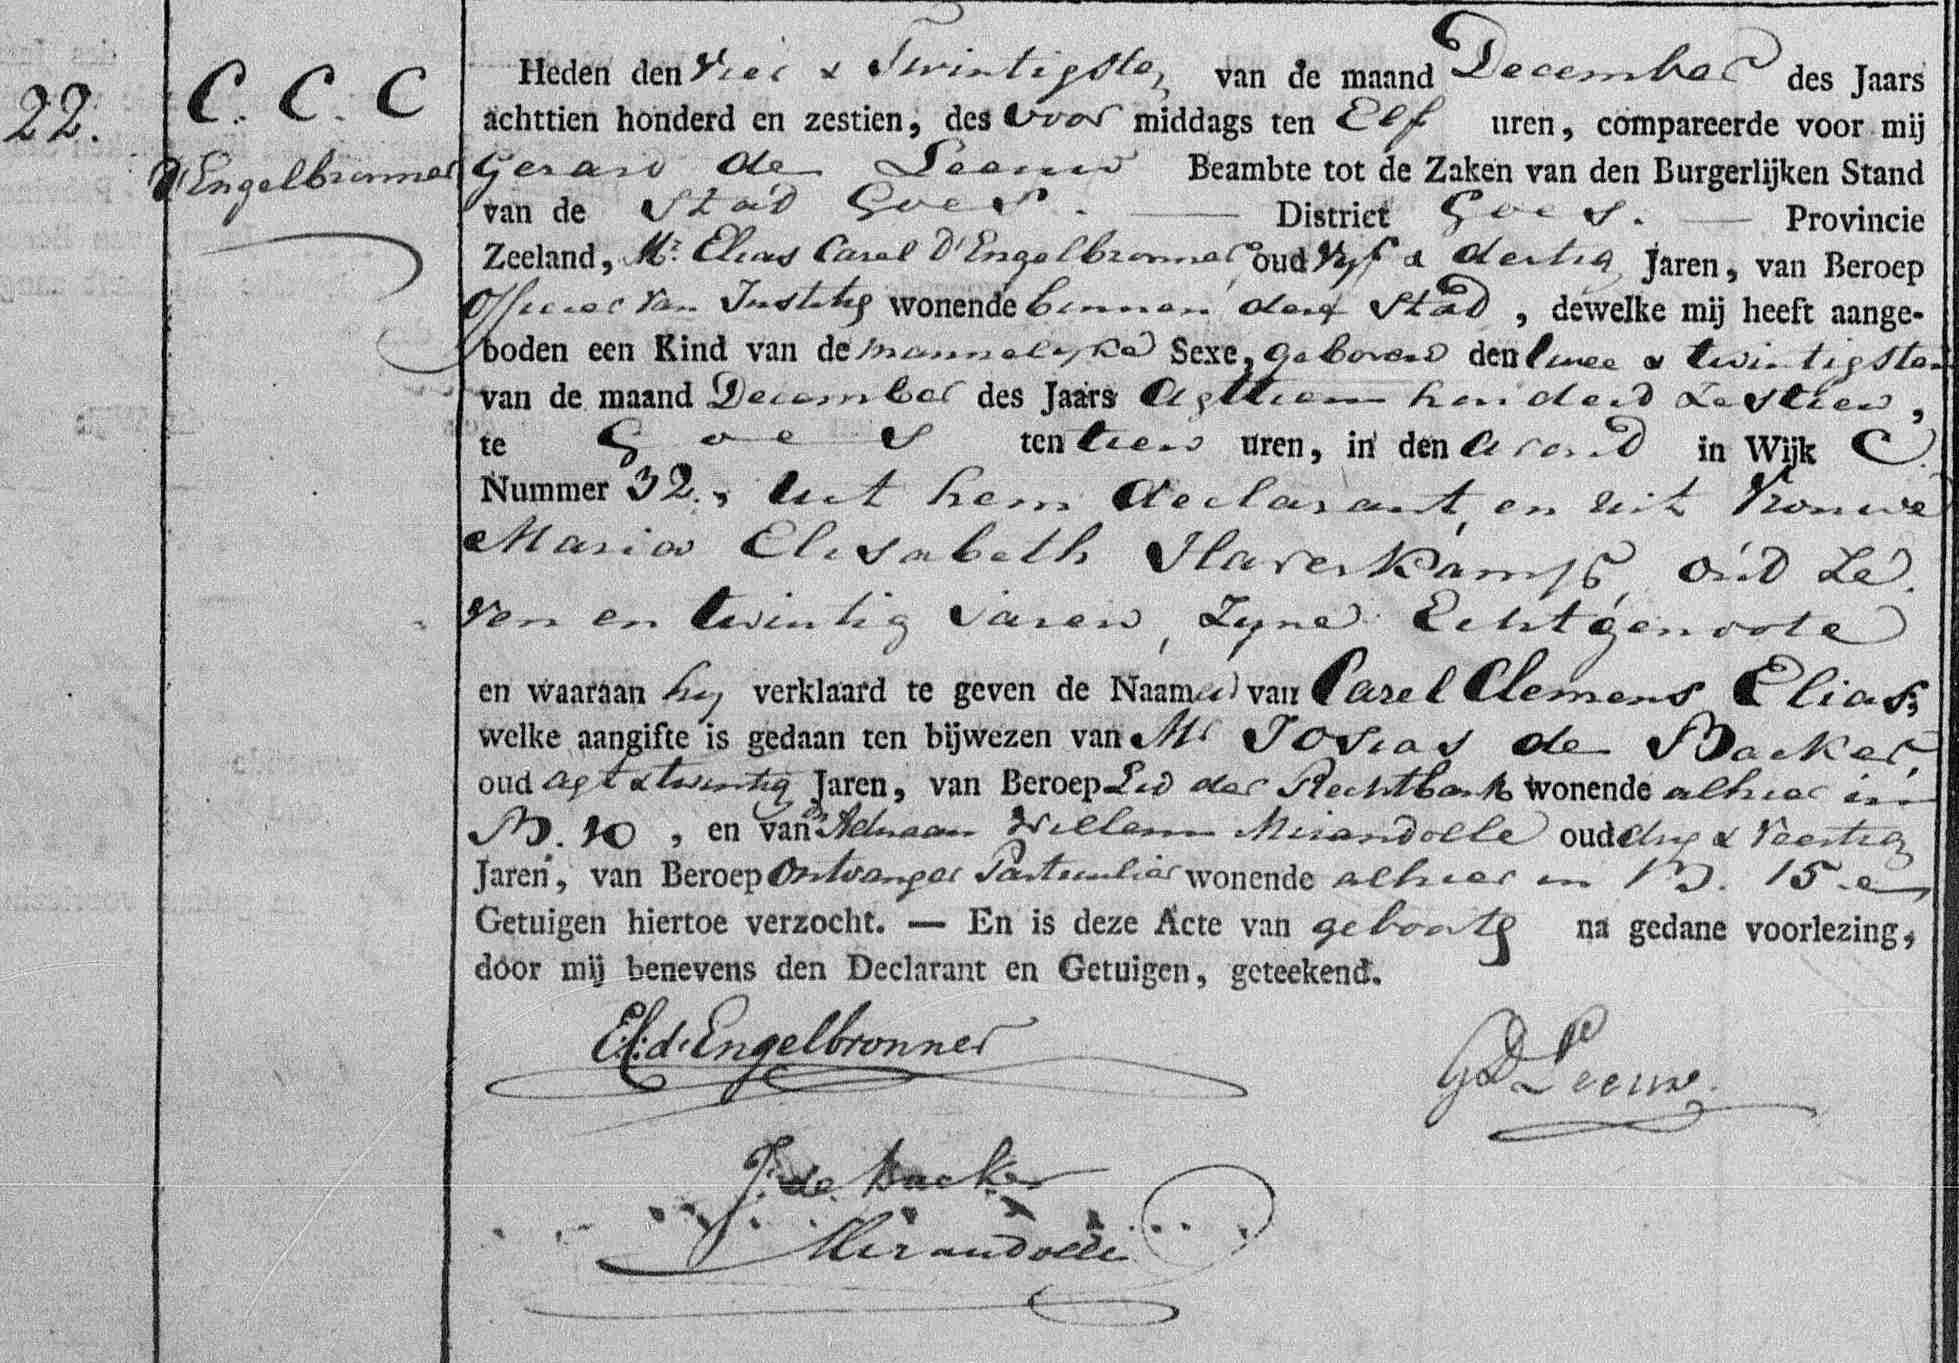 22.
C. C. C
d'Engelbronner
Heden den vier & Twintigsten van de maand December des Jaars
achttien honderd en zestien, des voor middags ten Elf uren, compareerde voor mij
Gerard de Leeuw Beambte tot de Zaken van den Burgerlijken Stand
van de Stad Goes. District Goes. Provincie
Zeeland, Mr. Elias Carel D'Engelbronner oud Vyf & dertig Jaren, van Beroep
Officier van Justitie wonende binnen deze Stad, dewelke mij heeft aange-
boden een Kind van de mannelyke Sexe, geboren den twee & twintigsten
van de maand December des Jaars Agttien honderd Zestien,
te Goes ten tien uren, in den avond in Wijk C.
Nummer 32., uit hem declarant, en uit Vrouwe
Maria Elisabeth Haverkamp, oud Ze
ven en twintig Jaren, Zyne Echtgenoote
en waaraan hy verklaard te geven de Naamen van Carel Clemens Elias,
welke aangifte is gedaan ten bijwezen van Mr Josias de Backer,
oud agt & twintig Jaren, van Beroep Lid der Rechtbank wonende alhier in
B. 10, en van Adriaan Willem Mirandolle oud dry & veertig
Jaren, van Beroep Ontvanger Particulier wonende alhier in B. 15. en
Getuigen hiertoe verzocht. — En is deze Acte van geboorte na gedane voorlezing,
door mij benevens den Declarant en Getuigen, geteekend.
E.C. d'Engelbronner
G D Leeuw.
J. de Backer
Mirandolle